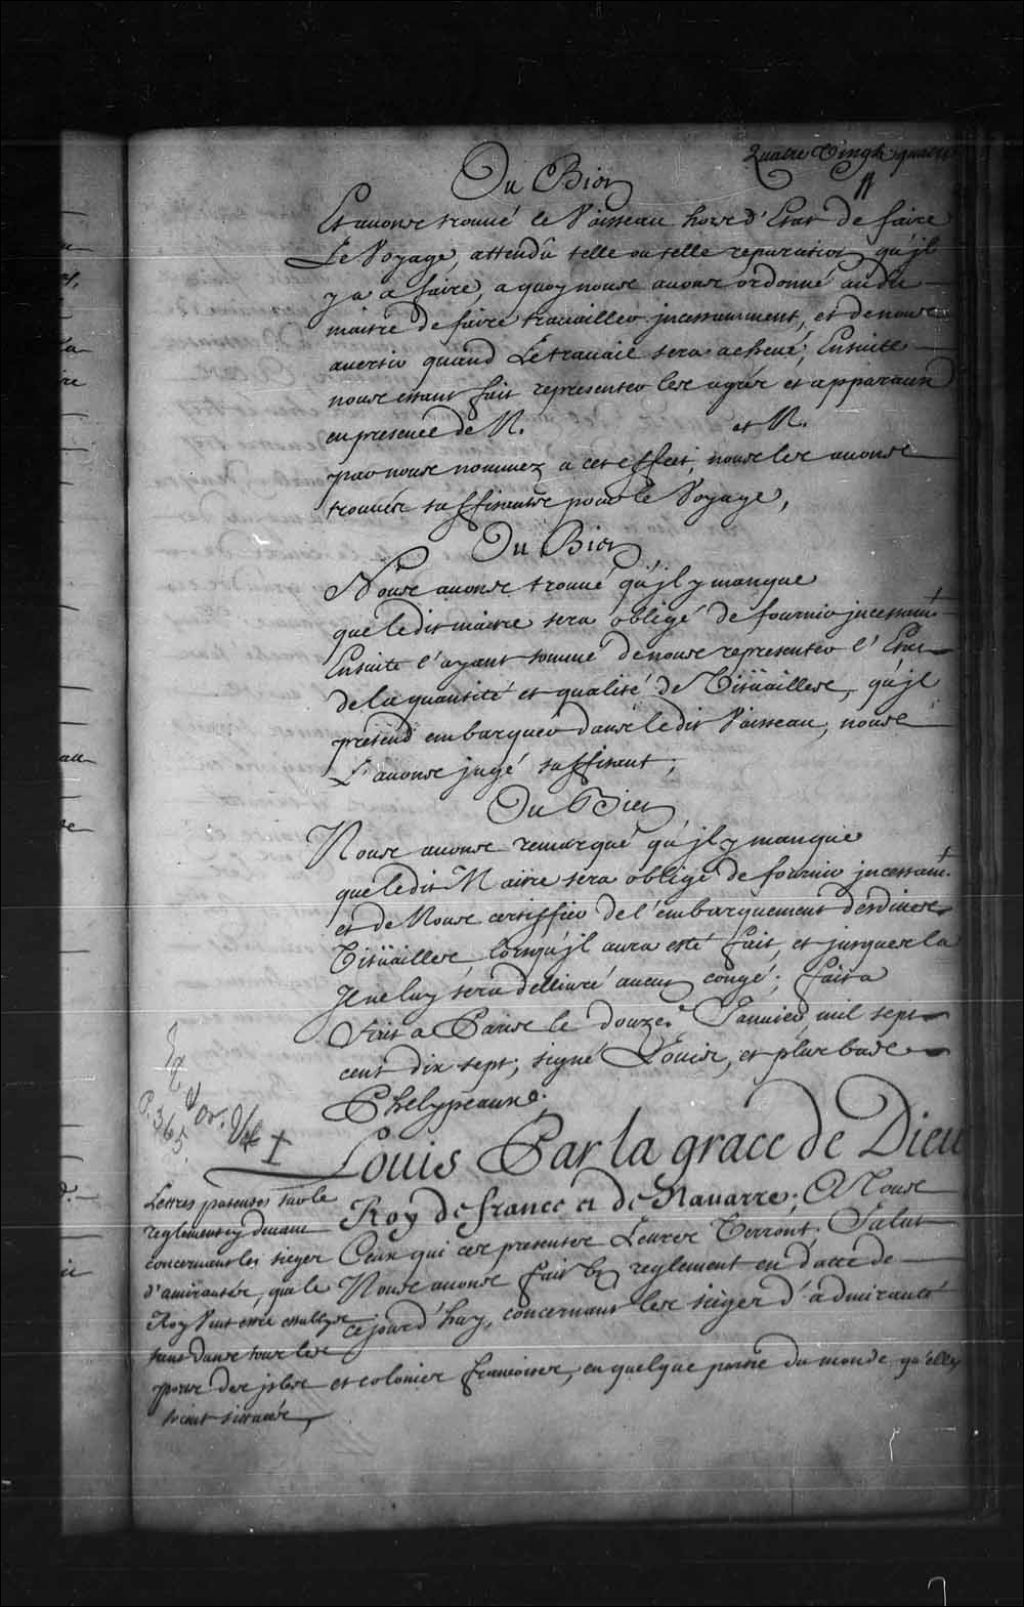 Quatre Vingt quatre
Ou Bien
Et avons trouvé le Vaisseau hors d'Etat de faire
Le Voyage, attendû telle ou telle reparation qu'jl
y a a faire, a quoy nous avons ordonné audit
maitre de faire travailler jncessamment, et de nous
avertir quand Le travail sera achevé, Ensuite
nous etant fait representer les agrés et apparaux
en presence de N. et N.
par nous nommez a cet effet, nous les avons
trouvés suffisants pour le Voyage,
Ou Bien
Nous avons trouvé qu'jl y manque
que ledit maitre sera obligé de fournir jncessamt
Ensuite l'ayant sommé de nous representer l'Etat
de la quantité et qualité de Victüailles, qu'jl
pretend embarquer dans ledit Vaisseau, nous
L'avons jugé suffisant;
Ou Bien
Nous avons remarqué qu'jl y manque
que ledit Maitre sera obligé de fournir jncessamt
et de Nous certiffier de l'embarquement desdites
Victüailles lorsqu'jl aura esté fait, et jusques la
Jl ne luy sera dellivré aucun congé; fait a
Fait a Paris le douze Janvier, mil sept
cent dix sept; signé Louis, et plus bas
Phelypeaux.
Ed. or. Vol. 1
P. 365.
Louis Par la grace de Dieu
Roy de france et de Navarre; A Tous
Ceux qui ces presentes Lettres Verront, Salut
Nous avons fait le reglement en datte de
ce jourd'huy, concernant les siéges d'admirauté
Lettres patentes sur le
reglement cy devant
concernant les sieges
d'amirautés, que le
Roy Veut estre establys
dans tous les
ports des jsles et colonies francoises, en quelque partie du monde qu'elles
soient situées,